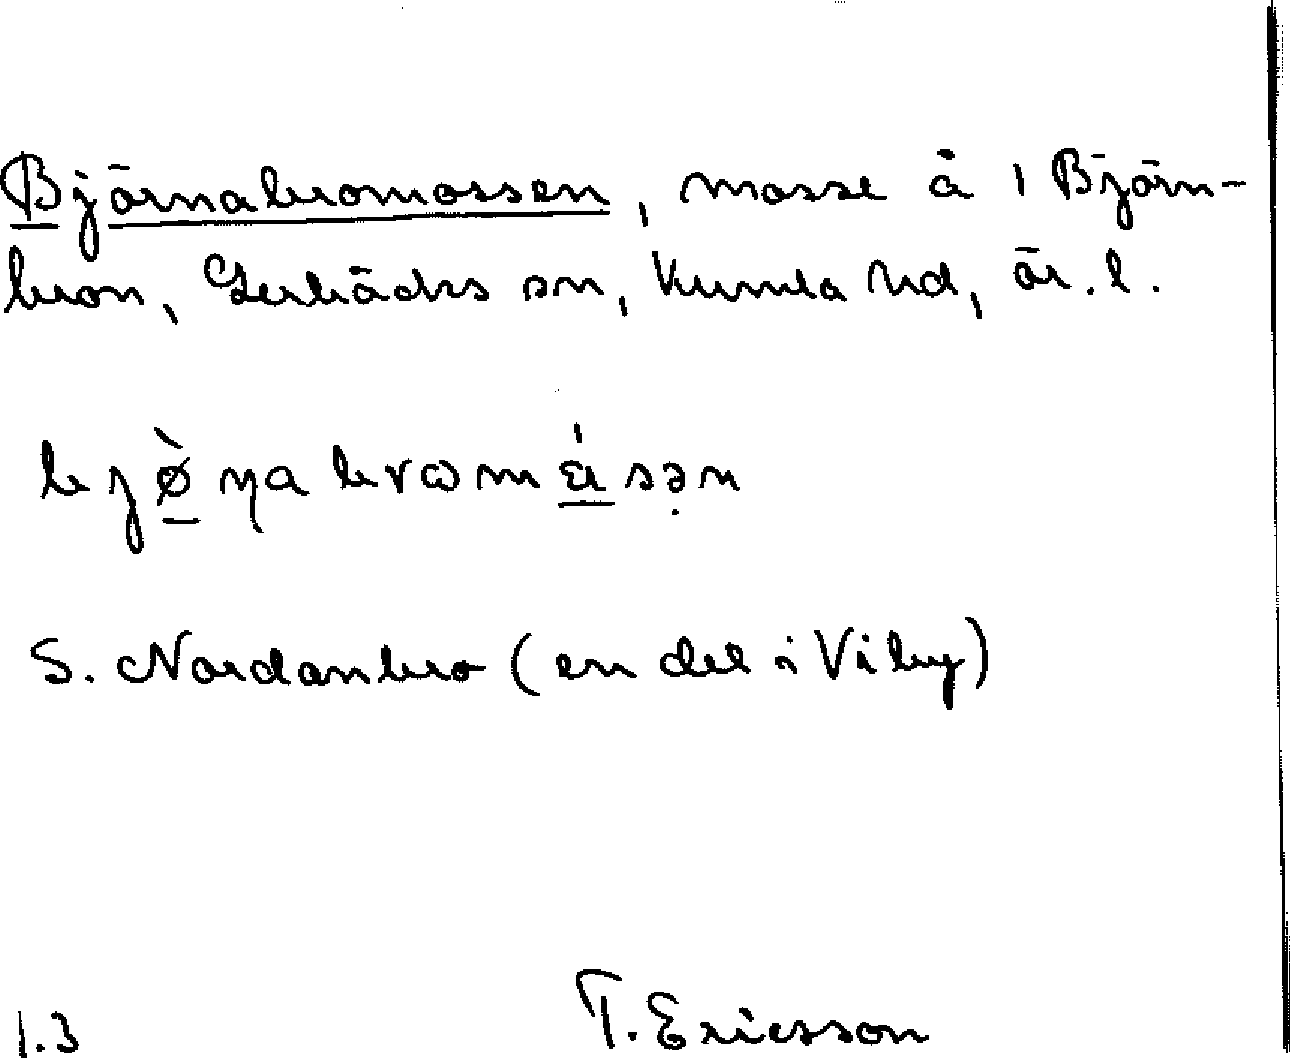 Björnabromossen, mosse å 1 Björn-
bron, Lerbäcks sn, Kumla hd, ör. l.
bjø̀ɲabrɷmǻsə̣n
S. Nordanbro (en del i Viby)
1.3 T. Ericsson